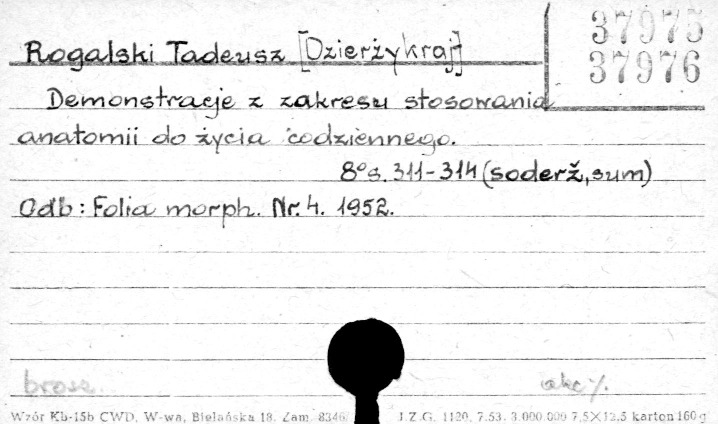 37975
37976
Rogalski Tadeusz [Dzierżykraj]
Demonstracje z zakresu stosowania
anatomii do życia codziennego.
8° s. 311-314 (soderž, sum)
Odb: Folia morph. Nr. 4. 1952.
brosz. akc ٪.
Wzór Kb-15b CWD, W-wa, Bielańska 18. Zam. 8346 J.Z.G. 1120, 7.53. 3.000.000 7,5×12,5 karton 160 g